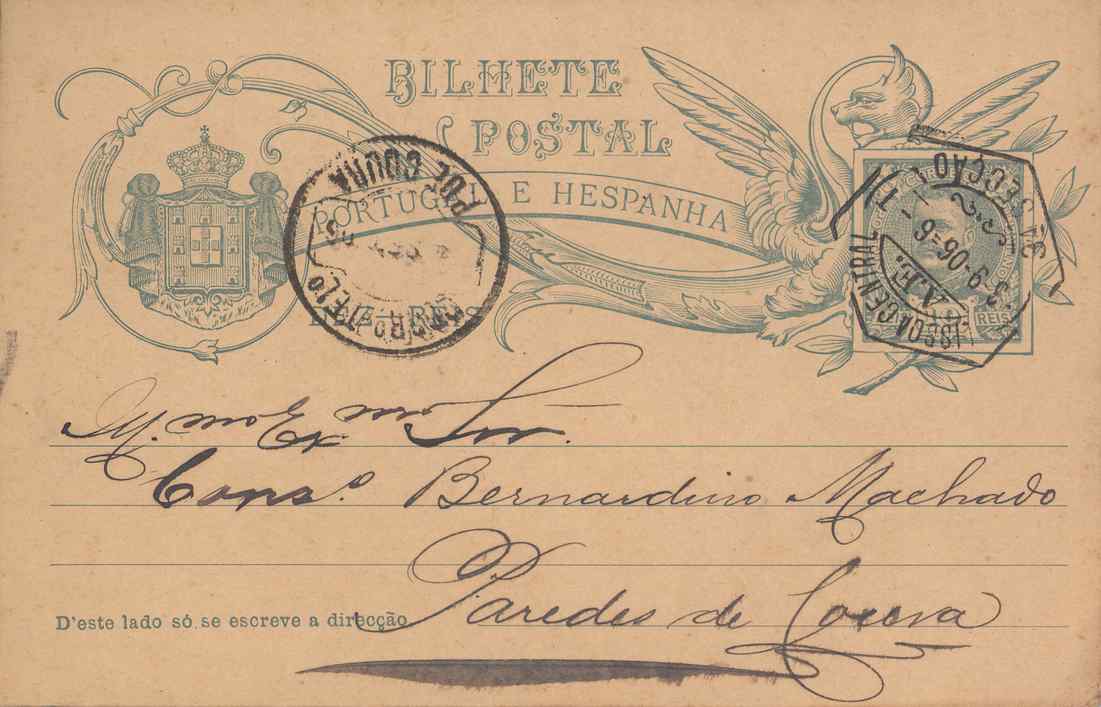 BILHETE
POSTAL
PORTUGAL E HESPANHA
REIS
LISBOA CENTRAL
3ª SECÇÃO
3-9-06=6
COURA
CORREIO
M.mo Ex.mo Snr.
Cons.o Bernardino Machado
Paredes de Coura
D'este lado só se escreve a direcção